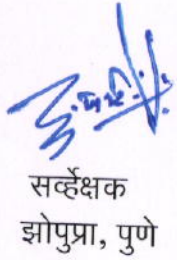 सर्व्हेक्षक
झोपुप्रा, पुणे